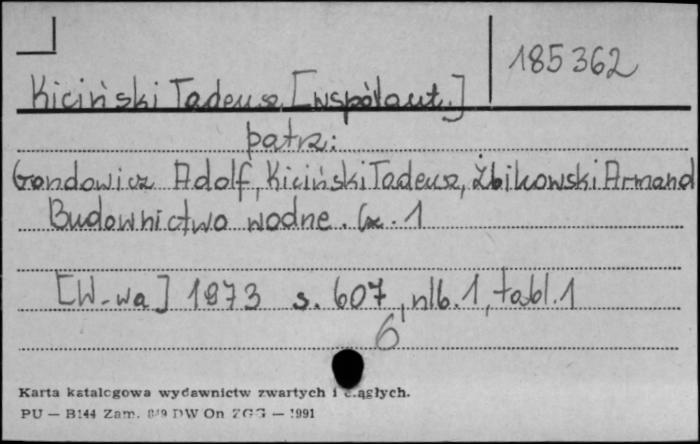 185362
Kiciński Tadeusz [współaut.]
patrz:
Gondowicz Adolf, Kiciński Tadeusz, Żbikowski Armand
Budownictwo wodne. Cz. 1
[W-wa] 1973 s. 607, nlb. 1, tabl. 1
6
Karta katalogowa wydawnictw zwartych i ciągłych.
PU — B144 Zam. DW On ZGG — 1991